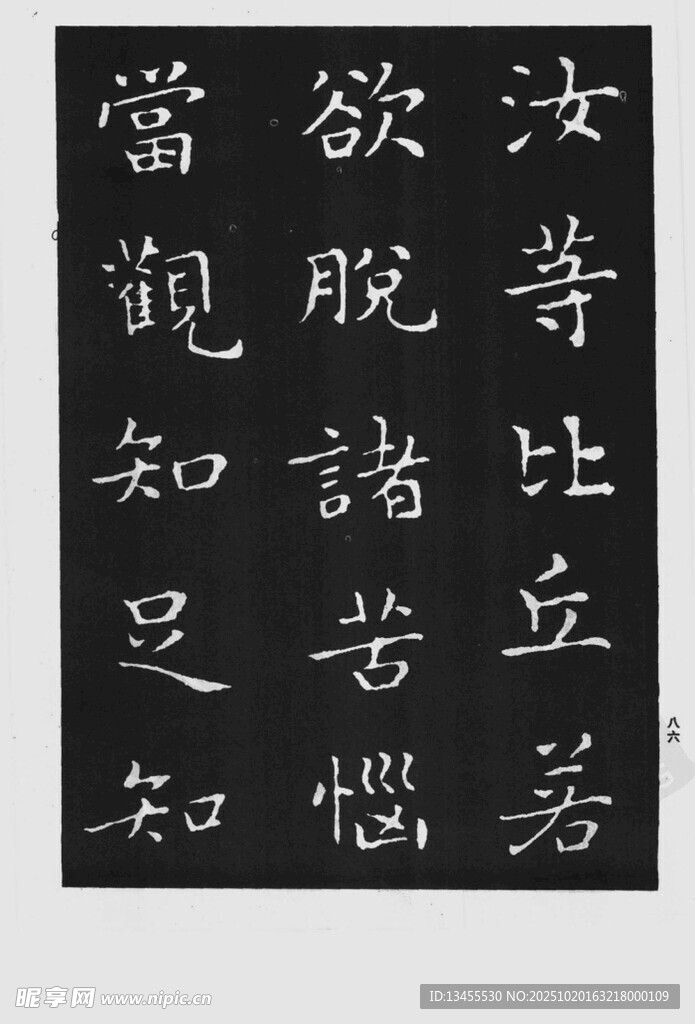 汝等比丘若
欲脫諸苦惱
當觀知足知
八六
昵享网 www.nipic.cn
ID:13455530 NO:20251020163218000109